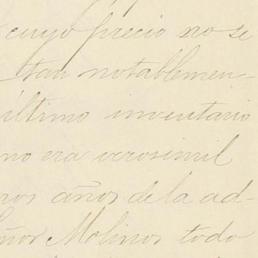 cuyo precio no se
tan notablemen-
último inventario
no era verosimil
nos años de la ad-
eñor Molinos todo